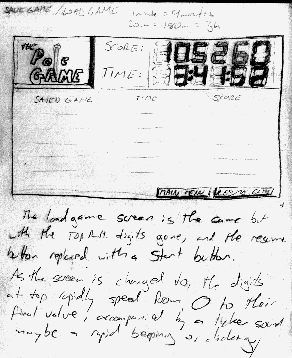 SAVE GAME / LOAD GAME
THE
Pole
GAME
SCORE: 105260
TIME: 3:41:52
SAVED GAME TIME SCORE
MAIN MENU RESUME GAME
The load game screen is the same but
with the TOP R.H. digits gone, and the resume
button replaced with a start button.
As the screen is changed to, the digits
at top rapidly speed from 0 to their
final value, accompanied by a sound
maybe a rapid beeping or clicking